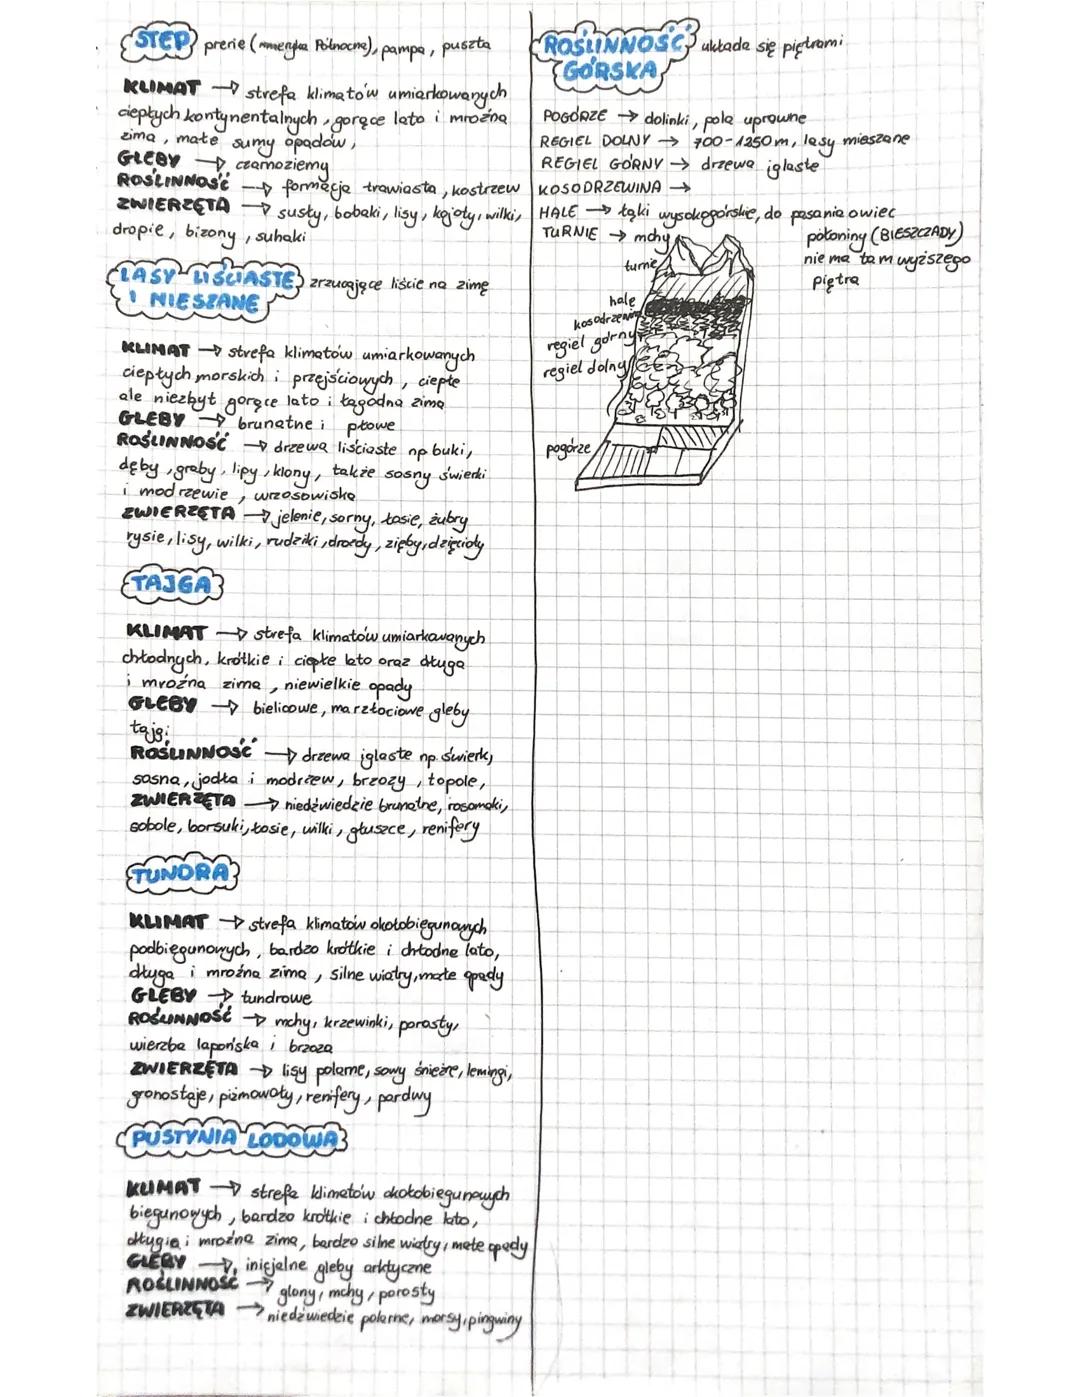 STEP prerie (Ameryka Północna), pampa, puszta
KLIMAT → strefa klimatów umiarkowanych
ciepłych kontynentalnych, gorące lato i mroźna
zima, małe sumy opadów,
GLEBY → czarnoziemy
ROŚLINNOŚĆ → formacja trawiasta, kostrzew
ZWIERZĘTA → susły, bobaki, lisy, kojoty, wilki,
dropie, bizony, suhaki
LASY LIŚCIASTE zrzucające liście na zimę
I MIESZANE
KLIMAT → strefa klimatów umiarkowanych
ciepłych morskich i przejściowych, ciepłe
ale niezbyt gorące lato i łagodna zima
GLEBY → brunatne i płowe
ROŚLINNOŚĆ → drzewa liściaste np buki,
dęby, graby, lipy, klony, także sosny świerki
i modrzewie, wrzosowiska
ZWIERZĘTA → jelenie, sarny, łosie, żubry
rysie, lisy, wilki, rudziki, drozdy, zięby, dzięcioły
TAJGA
KLIMAT → strefa klimatów umiarkowanych
chłodnych, krótkie i ciepłe lato oraz długa
i mroźna zima, niewielkie opady
GLEBY → bielicowe, marzłociowe gleby
tajgi
ROŚLINNOŚĆ → drzewa iglaste np. świerk,
sosna, jodła i modrzew, brzozy, topole,
ZWIERZĘTA → niedźwiedzie brunatne, rosomaki,
sobole, borsuki, łosie, wilki, głuszce, renifery
TUNDRA
KLIMAT → strefa klimatów okołobiegunowych
podbiegunowych, bardzo krótkie i chłodne lato,
długa i mroźna zima, silne wiatry, małe opady
GLEBY → tundrowe
ROŚLINNOŚĆ → mchy, krzewinki, porosty,
wierzba lapońska i brzoza
ZWIERZĘTA → lisy polarne, sowy śnieżne, lemingi,
gronostaje, piżmowoły, renifery, pardwy
PUSTYNIA LODOWA
KLIMAT → strefa klimatów okołobiegunowych
biegunowych, bardzo krótkie i chłodne lato,
długie i mroźna zima, bardzo silne wiatry, małe opady
GLEBY → inicjalne gleby arktyczne
ROŚLINNOŚĆ → glony, mchy, porosty
ZWIERZĘTA → niedźwiedzie polarne, morsy, pingwiny
ROŚLINNOŚĆ układa się piętrami
GÓRSKA
POGÓRZE → dolinki, pola uprawne
REGIEL DOLNY → 700-1250m, lasy mieszane
REGIEL GÓRNY → drzewa iglaste
KOSODRZEWINA →
HALE → łąki wysokogórskie, do pasania owiec
TURNIE → mchy
połoniny (BIESZCZADY)
nie ma tam wyższego
piętra
turnie
hale
kosodrzewina
regiel górny
regiel dolny
pogórze